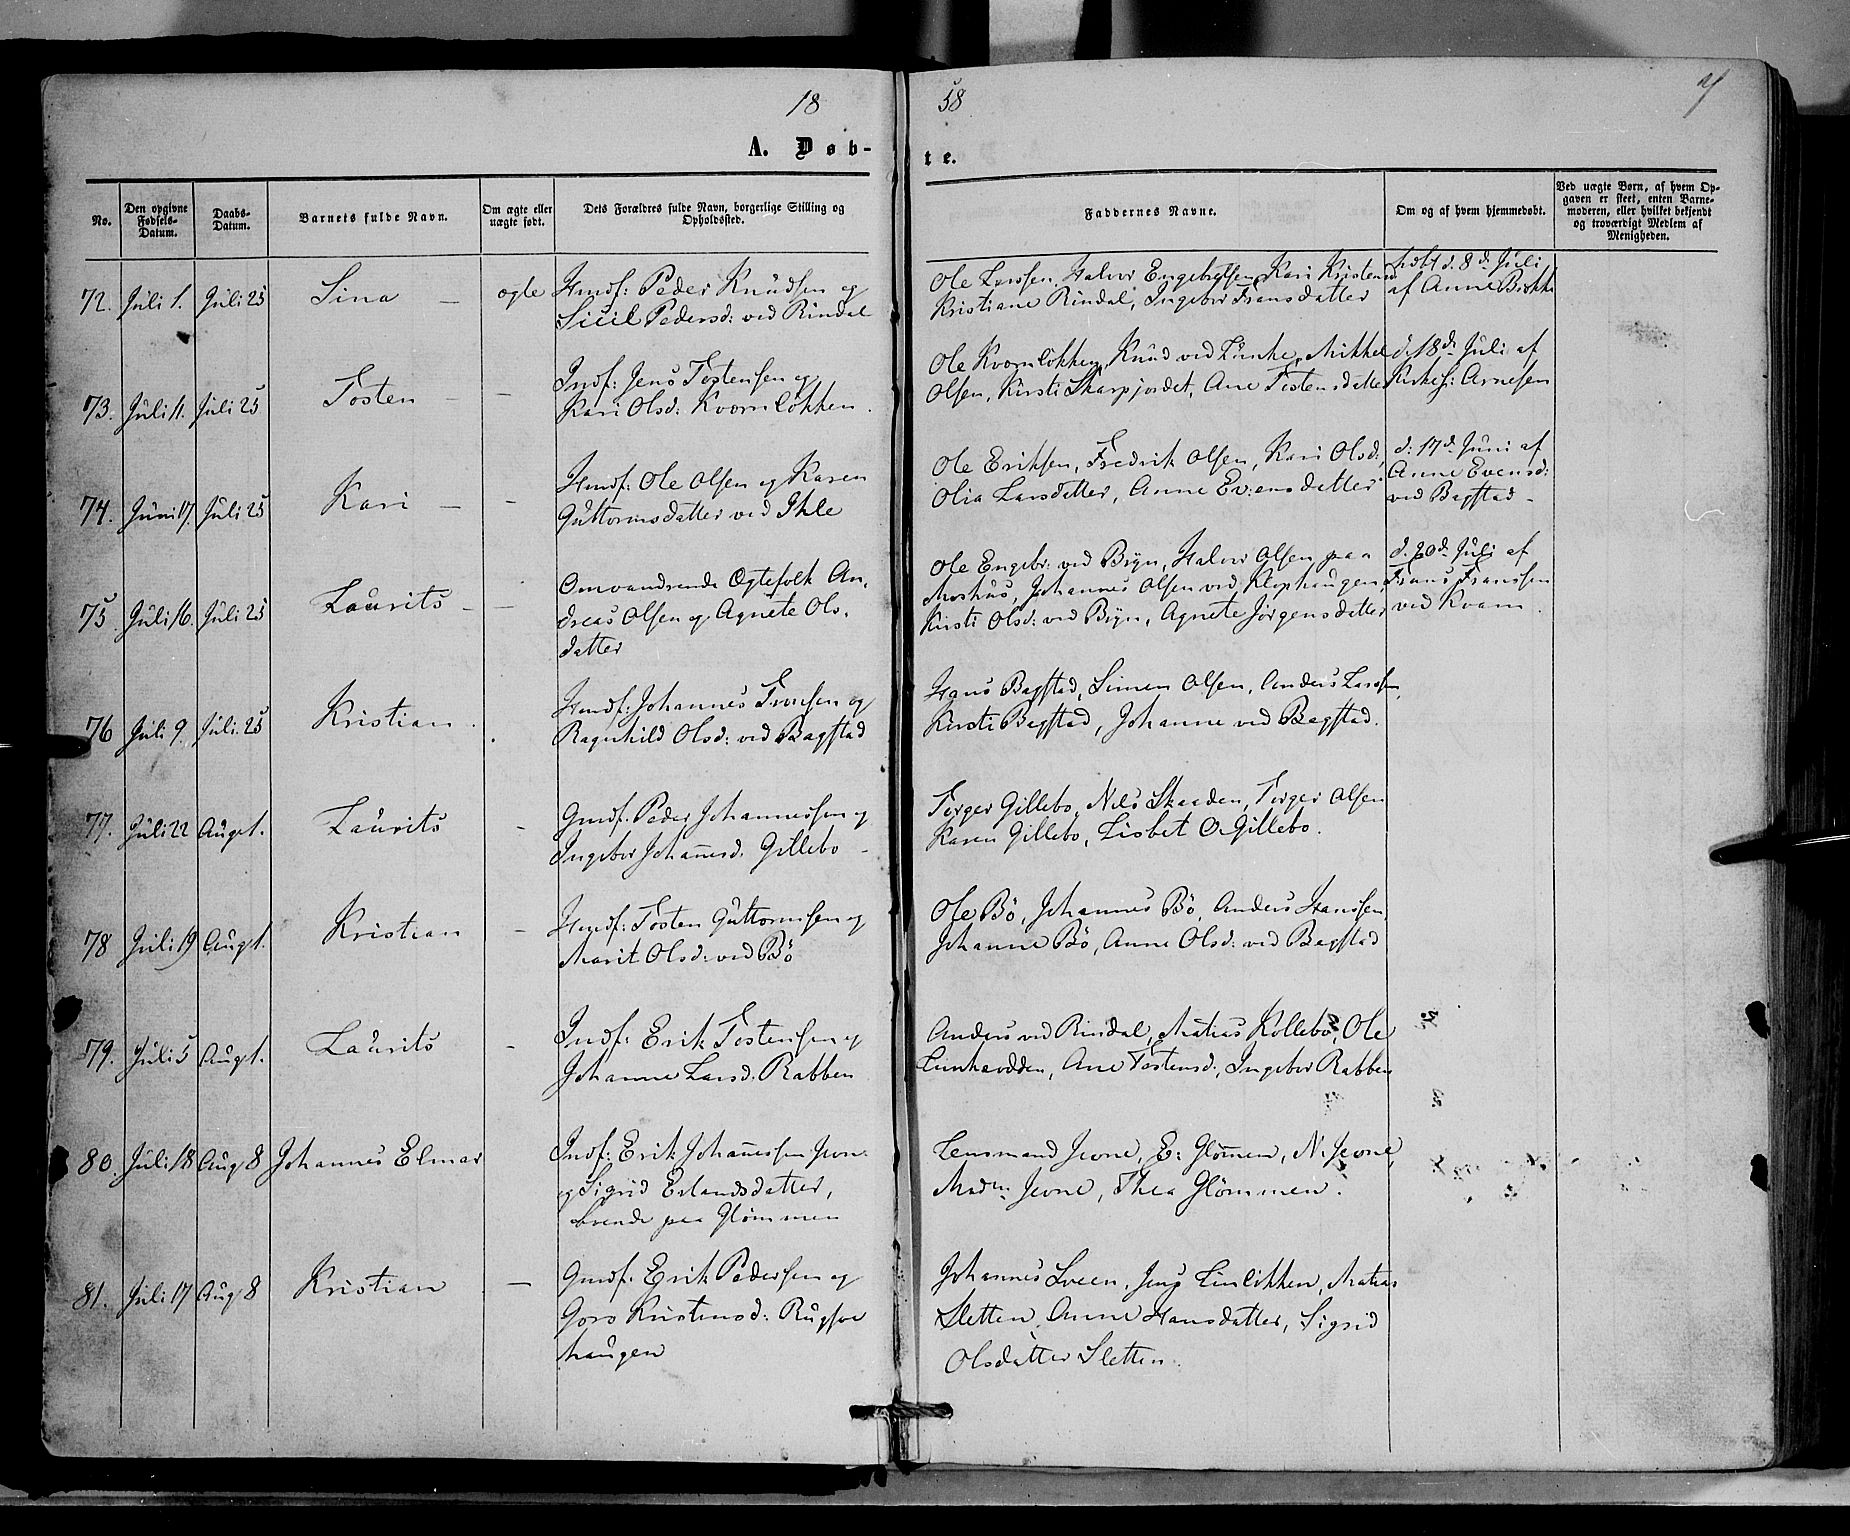 18 58
A. Døb- te.
No. Den opgivne Fødsels-Datum. Daabs-Datum. Barnets fulde Navn. Om ægte eller uægte født. Dets Forældres fulde Navn, borgerlige Stilling og Opholdssted. Faddernes Navne. Om og af hvem hjemmedøbt. Ved uægte Børn, af hvem Opgaven er skeet, enten Barnemoderen, eller hvilket bekjendt og troværdigt Medlem af Menigheden.
72. Juli 1. Juli 25 Sina — ægte Husmf: Peder Knudsen og
Sicil Pedersd: ved Rindal
Ole Larssen, Halvor Engebretsen, Kari Kristensd
Kristiane Rindal, Ingebor Fransdatter
hdbt d. 8d Juli
af Anne
73. Juli 11. Juli 25 Tosten — — Indf: Jens Tostensen og
Kari Olsd: Kvornløkken.
Ole Kvornløkken, Knud ved Linke, Mikkel
Olsen, Kirsti Skarpjordet, Ane Tostensdatter
d. 18d Juli af
Kirkes: Arnesen
74. Juni 17. Juli 25 Kari — — Husmf: Ole Olsen og Karen
Guttormsdatter ved Ihle
Ole Eriksen, Fredrik Olsen, Kari Olsd:,
Olia Larsdatter, Anne Evensdatter
d: 17d Juni af
Anne Evensd:
ved Bagstad —
75. Juli 16. Juli 25 Laurits — — Omvandrende Ægtefolk An-
dreas Olsen og Agnete Ols-
datter
Ole Engebr: ved Bøyn, Halvor Olsen paa
Moshus, Johannes Olsen ved Klophaugen,
Kirsti Olsd: ved Bøyn, Agnete Jørgensdatter
d. 20d Juli af
Frans Franssen
ved Kvam.
76 Juli 9. Juli 25 Kristian. Husmf: Johannes Iversen og
Ragnhild Olsd: ved Bagstad
Hans Bagstad, Simen Olsen, Anders Larssen,
Kirsti Bagstad, Johanne ved Bagstad.
77. Juli 22 Aug 1. Laurits — Gmdf: Peder Johannessen og
Ingebor Johannesd. Gillebo —
Torger Gillebo, Nils Skaaden, Torger Olsen
Karen Gillebo, Lisbet O. Gillebo.
78 Juli 19 Aug 1. Kristian — Husmf: Tosten Guttormsen og
Marit Olsd: ved Bö
Ole Bö, Johannes Bö, Anders Hanssen,
Johanne Bö, Anne Olsd: ved Bagstad
79. Juli 5 Aug 1. Laurits — Indf: Erik Tostensen og
Johanne Larsd. Rabben
Anders ved Rindal, Matias Kollebö, Ole
Ane Tostensd:, Ingebor Rabben
80. Juli 18 Aug 8 Johannes Elmar Indf: Erik Johannessen Jevne
og Sigrid Erlandsdatter,
boende paa Glömmen
Lensmand Jevne, E: Glömmen, N. Jevne,
Madm Jevne, Thea Glömmen.
81. Juli 17 Aug 8 Kristian — Gmdf: Erik Pedersen og
Goro Kristensd: Rugsve
haugen
Johannes Sveen, Jens Linlökken, Matias
Sletten, Anne Hansdatter, Sigrid
Olsdatter Sletten.